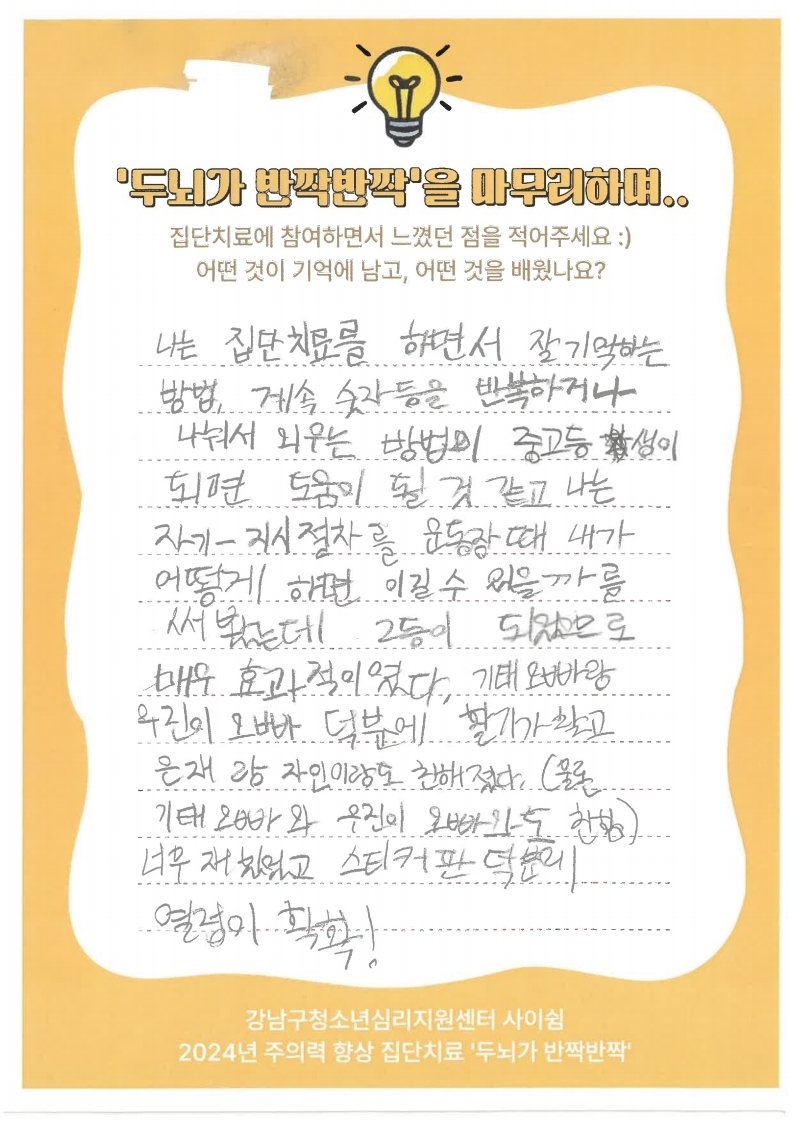 '두뇌가 반짝반짝'을 마무리하며..
집단치료에 참여하면서 느꼈던 점을 적어주세요 :)
어떤 것이 기억에 남고, 어떤 것을 배웠나요?
나는 집단치료를 하면서 잘 기억하는
방법, 계속 숫자 등을 반복하거나
나눠서 외우는 방법이 중고등 생이
되면 도움이 될 것 같고 나는
자기-지시 절차를 운동장 때 내가
어떻게 하면 이길 수 있을까를
써 봤는데 2등이 되었으므로
매우 효과적이였다, 기태 오빠랑
우진이 오빠 덕분에 활기가 찼고
은재 랑 자인이랑도 친해졌다. (물론
기태 오빠와 우진이 오빠와도 친함)
너무 재밌었고 스티커 판 덕분에
열정이 확확!
강남구청소년심리지원센터 사이쉼
2024년 주의력 향상 집단치료 '두뇌가 반짝반짝'